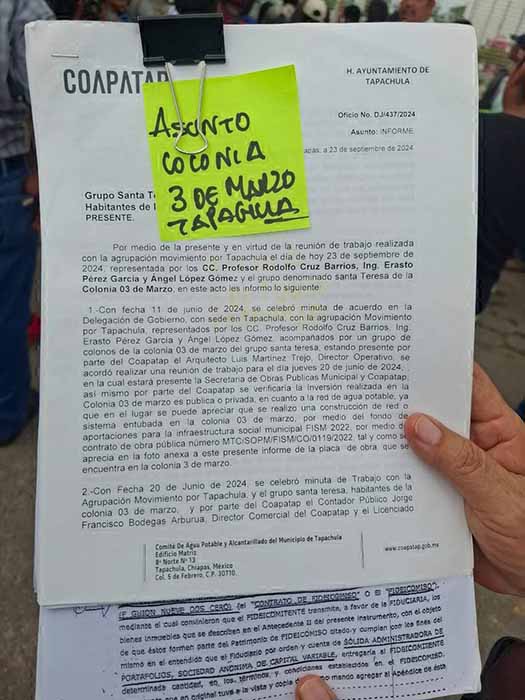 COAPATAP
H. AYUNTAMIENTO DE
TAPACHULA
Oficio No. DJ/437/2024
Asunto: INFORME
a 23 de septiembre de 2024
ASUNTO
COLONIA
3 DE MARZO
TAPACHULA
Grupo Santa T
Habitantes de l
PRESENTE.
Por medio de la presente y en virtud de la reunión de trabajo realizada
con la agrupación movimiento por Tapachula el día de hoy 23 de septiembre de
2024, representada por los CC. Profesor Rodolfo Cruz Barrios, Ing. Erasto
Pérez García y Ángel López Gómez y el grupo denominado santa Teresa de la
Colonia 03 de Marzo, en este acto les informo lo siguiente:
1.-Con fecha 11 de junio de 2024, se celebró minuta de acuerdo en la
Delegación de Gobierno, con sede en Tapachula, con la agrupación Movimiento
por Tapachula, representados por los CC. Profesor Rodolfo Cruz Barrios, Ing.
Erasto Pérez García y Ángel López Gómez, acompañados por un grupo de
colonos de la colonia 03 de marzo del grupo santa teresa, estando presente por
parte del Coapatap el Arquitecto Luis Martínez Trejo, Director Operativo, se
acordó realizar una reunión de trabajo para el día jueves 20 de junio de 2024,
en la cual estará presente la Secretaria de Obras Publicas Municipal y Coapatap,
así mismo por parte del Coapatap se verificaría la Inversión realizada en la
Colonia 03 de marzo es publica o privada, en cuanto a la red de agua potable, ya
que en el lugar se puede apreciar que se realizo una construcción de red o
sistema entubada en la colonia 03 de marzo, por medio del fondo de
aportaciones para la infraestructura social municipal FISM 2022, por medio de
contrato de obra pública número MTC/SOPM/FISM/CO/0119/2022, tal y como se
aprecia en la foto anexa a este presente informe de la placa de obra que se
encuentra en la colonia 3 de marzo.
2.-Con Fecha 20 de Junio de 2024, se celebró minuta de Trabajo con la
Agrupación Movimiento por Tapachula, y el grupo santa teresa, habitantes de la
colonia 03 de marzo, y por parte del Coapatap el Contador Público Jorge
Francisco Bodegas Arburua, Director Comercial del Coapatap y el Licenciado
Comité De Agua Potable y Alcantarillado del Municipio de Tapachula
Edificio Matriz
8ª Norte Nº 13
Tapachula, Chiapas, México
Col. 5 de Febrero, C.P. 30710.
www.coapatap.gob.mx
(F GUION NUEVE DOS CERO) (el "CONTRATO DE FIDEICOMISO" o El "FIDEICOMISO"),
mediante el cual convinieron que el FIDEICOMITENTE transmite, a favor de la FIDUCIARIA, los
bienes inmuebles que se describen en el Antecedente II del presente instrumento, con el objeto
de que éstos formen parte del Patrimonio de FIDEICOMISO citado y cumplan con los fines del
mismo en el entendido que el Fiduciario por orden y cuenta de SÓLIDA ADMINISTRADORA DE
PORTAFOLIOS, SOCIEDAD ANÓNIMA DE CAPITAL VARIABLE, entregaría al FIDEICOMITENTE
determinada cantidad, en los términos, y condiciones establecidos en el FIDEICOMISO,
que en original tuve a la vista y copia de mando agregar al Apéndice de ésta